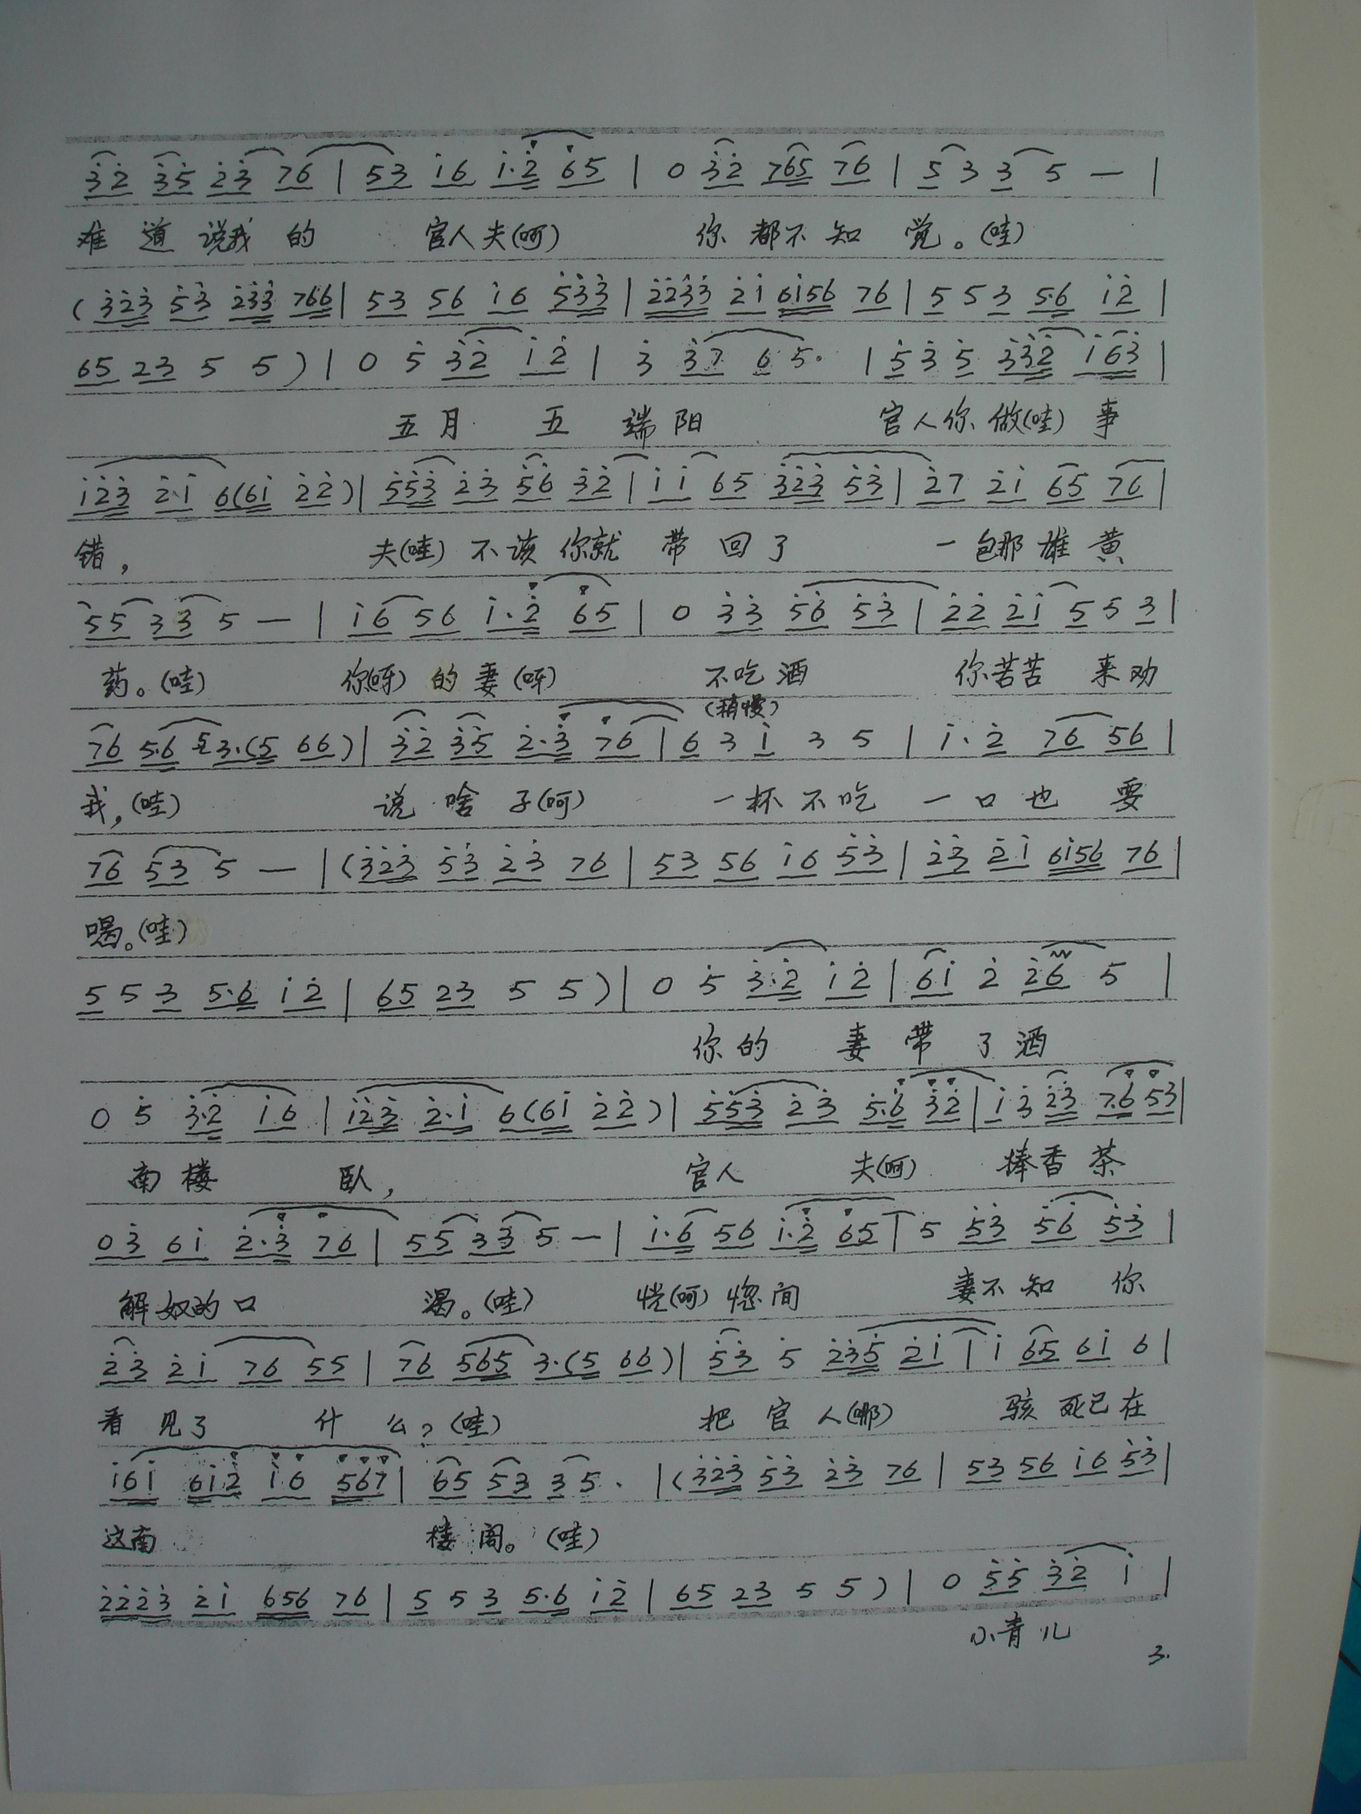 3̇2̇ 3̇5̇ 2̇3̇ 76 | 53 i6 i·2̇ 65 | 0 3̇2̇ 765 76 | 5 3 3 5 — |
难道说我的 官人夫(呵) 你都不知觉。(哇)
(3̇2̇3̇ 5̇3̇ 2̇3̇3̇ 766 | 53 56 i6 5̇3̇3̇ | 2̇2̇3̇3̇ 2̇i 6i56 76 | 5 5 3 5·6 i2̇ |
65 23 5 5 ) | 0 5̇ 3̇2̇ i2̇ | 3̇ 3̇7 6 5· | 5̇ 3̇ 5̇ 3̇3̇2̇ i63̇ |
五月 五 端阳 官人你做(哇)事
i2̇3̇ 2̇·i 6(6i 2̇2̇) | 5̇5̇3̇ 2̇3̇ 5̇6̇ 3̇2̇ | i i 65 3̇2̇3̇ 5̇3̇ | 2̇7 2̇i 65 76 |
错, 夫(哇)不该你就 带回了 一包那雄黄
55 33 5 — | i6 56 i·2̇ 65 | 0 3̇3̇ 5̇6̇ 5̇3̇ | 2̇2̇ 2̇i 5 5 3 |
药。(哇) 你(呀)的妻(呀) 不吃酒 你苦苦 来劝
(稍慢)
76 5·6 3·(5 66) | 3̇2̇ 3̇5̇ 2̇·3̇ 76 | 6 3 i 3 5 | i·2̇ 76 56 |
我,(哇) 说啥子(呵) 一杯不吃 一口也 要
76 53 5 — | (3̇2̇3̇ 5̇3̇ 2̇3̇ 76 | 53 56 i6 5̇3̇ | 2̇3̇ 2̇i 6i56 76 |
喝。(哇)
5 5 3 5·6 i2̇ | 65 23 5 5 ) | 0 5̇ 3̇·2̇ i2̇ | 6i 2̇ 2̇6 5 |
你的 妻带了酒
0 5̇ 3̇·2̇ i6 | i2̇3̇ 2̇·i 6(6i 2̇2̇) | 5̇5̇3̇ 2̇3̇ 5̇·6̇ 3̇2̇ | i 3̇ 2̇3̇ 7·6 5̇3̇ |
南楼 卧, 官人 夫(呵) 捧香茶
03̇ 6i 2̇·3̇ 76 | 55 33 5 — | i·6 56 i·2̇ 65 | 5 5̇3̇ 5̇6̇ 5̇3̇ |
解奴的口 渴。(哇) 恍(呵)惚间 妻不知 你
2̇3̇ 2̇i 76 55 | 76 565 3·(5 66) | 5̇3̇ 5̇ 2̇3̇5̇ 2̇i | i 65 6i 6 |
看见了 什么?(哇) 把官人(哪) 骇死已在
i6i 6i2̇ i·6 567 | 65 53 35 · | (3̇2̇3̇ 5̇3̇ 2̇3̇ 76 | 53 56 i6 5̇3̇ |
这南 楼阁。(哇)
2̇2̇2̇3̇ 2̇i 656 76 | 5 5 3 5·6 i2̇ | 65 23 5 5 ) | 0 5̇5̇ 3̇2̇ i |
小青儿
3.